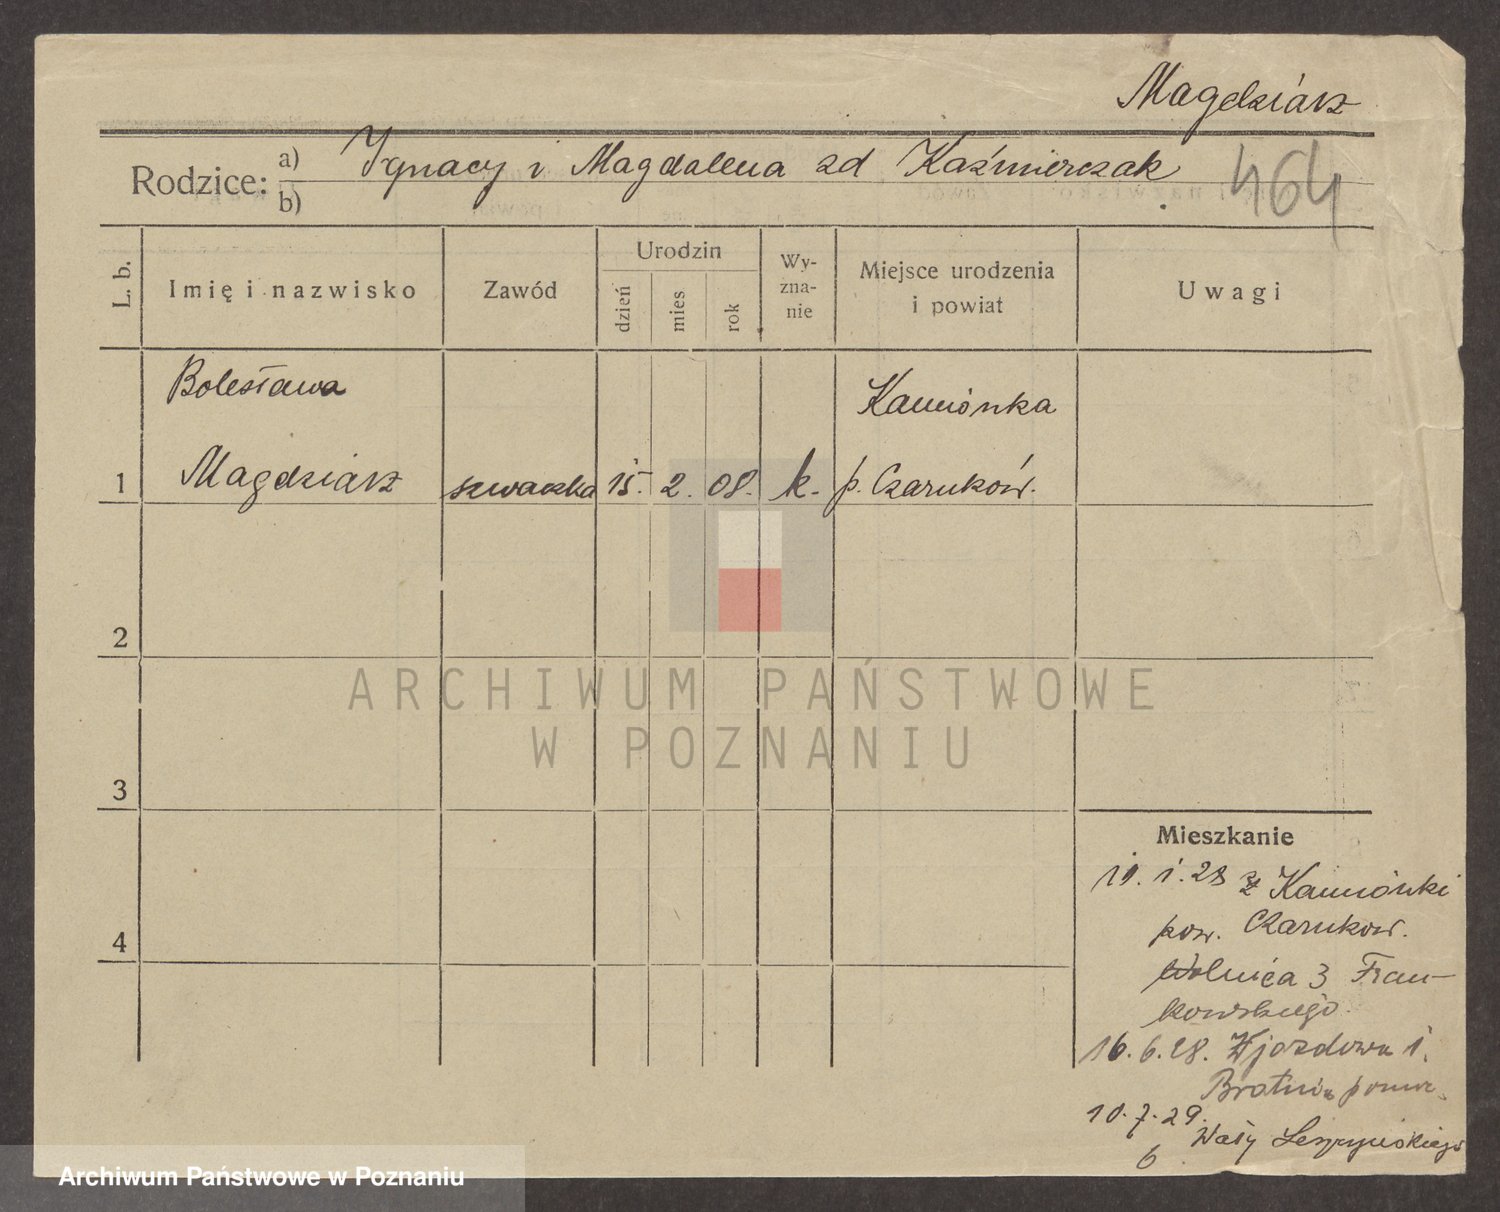 Magdziarz
Rodzice: a) Ignacy i Magdalena zd Kaźmierczak
b)
464
L. b.
Imię i nazwisko
Zawód
Urodzin
dzień
mies
rok
Wy-
zna-
nie
Miejsce urodzenia
i powiat
Uwagi
Bolesława
Kamionka
1 Magdziarz szwaczka 15. 2. 08. k. p. Czarnków.
2
ARCHIWUM PAŃSTWOWE
W POZNANIU
3
Mieszkanie
z Kamionki
4
pow. Czarnkow.
Wolnica 3 Fran-
kowskiego
16.6.28. Wjazdowa 1.
Bratnia pomoc
10.7.29.
Wały Leszczyńskiego
6
Archiwum Państwowe w Poznaniu